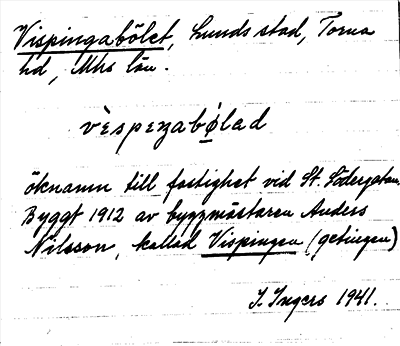 Vispingabölet, Lunds stad, Torna
hd, Mhs län.
vèspeŋabǿlad
öknamn till fastighet vid St. Södergatan.
Byggt 1912 av byggmästaren Anders
Nilsson, kallad Vispingen (getingen)
I. Ingers 1941.